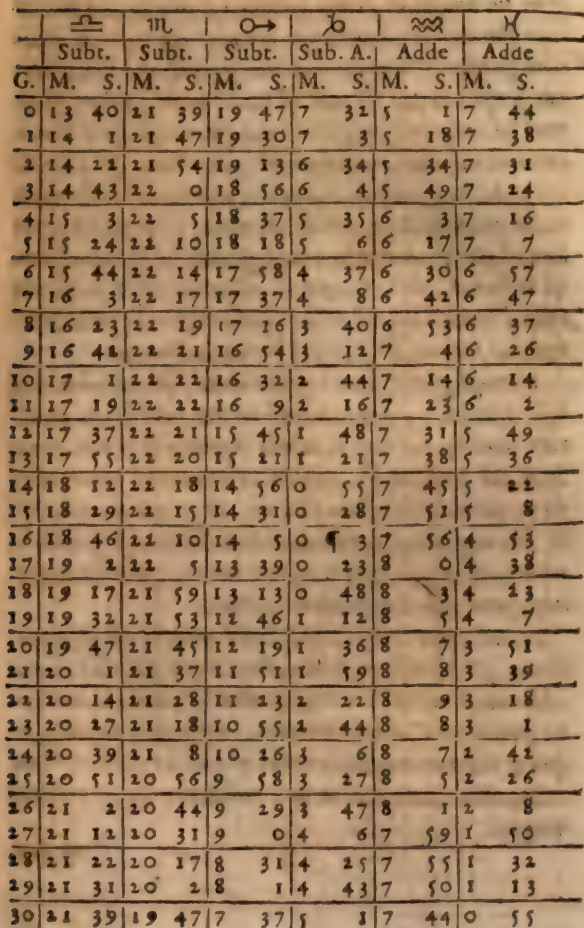 ♎ ♏ ♐ ♑ ♒ ♓
Subt. Subt. Subt. Sub. A. Adde Adde
G. M. S. M. S. M. S. M. S. M. S. M. S.
0 13 40 21 39 19 47 7 32 5 1 7 44
1 14 1 21 47 19 30 7 3 5 18 7 38
2 14 22 21 54 19 13 6 34 5 34 7 31
3 14 43 22 0 18 56 6 4 5 49 7 24
4 15 3 22 5 18 37 5 35 6 3 7 16
5 15 24 22 10 18 18 5 6 6 17 7 7
6 15 44 22 14 17 58 4 37 6 30 6 57
7 16 3 22 17 17 37 4 8 6 42 6 47
8 16 23 22 19 17 16 3 40 6 53 6 37
9 16 42 22 21 16 54 3 12 7 4 6 26
10 17 1 22 22 16 32 2 44 7 14 6 14
11 17 19 22 22 16 9 2 16 7 23 6 2
12 17 37 22 21 15 45 1 48 7 31 5 49
13 17 55 22 20 15 21 1 21 7 38 5 36
14 18 12 22 18 14 56 0 55 7 45 5 22
15 18 29 22 15 14 31 0 28 7 51 5 8
16 18 46 22 10 14 5 0 ¶ 3 7 56 4 53
17 19 2 22 5 13 39 0 23 8 0 4 38
18 19 17 21 59 13 13 0 48 8 3 4 23
19 19 32 21 53 12 46 1 12 8 5 4 7
20 19 47 21 45 12 19 1 36 8 7 3 51
21 20 1 21 37 11 51 1 59 8 8 3 39
22 20 14 21 28 11 23 2 22 8 9 3 18
23 20 27 21 18 10 55 2 44 8 8 3 1
24 20 39 21 8 10 26 3 6 8 7 2 42
25 20 51 20 56 9 58 3 27 8 5 2 26
26 21 2 20 44 9 29 3 47 8 1 2 8
27 21 12 20 31 9 0 4 6 7 59 1 50
28 21 22 20 17 8 31 4 25 7 55 1 32
29 21 31 20 2 8 1 4 43 7 50 1 13
30 21 39 19 47 7 37 5 1 7 44 0 55